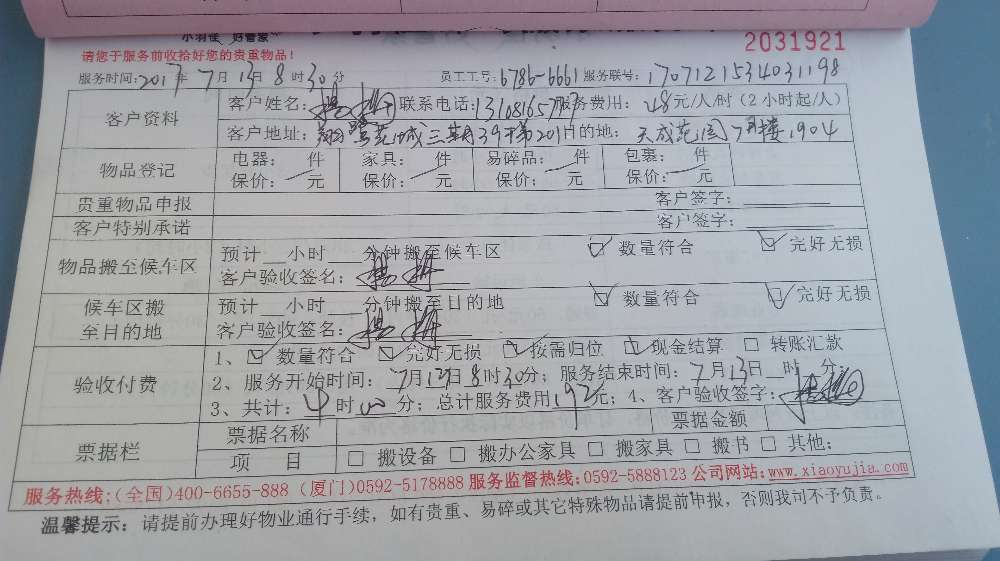 小羽佳 好管家
2031921
请您于服务前收拾好您的贵重物品！
服务时间：2017年7月13日8时30分 员工工号：6786-6661 服务联号：1707121534031198
客户资料 客户姓名：杨 联系电话： 服务费用：48元/人/时（2小时起/人）
客户地址： 花城三期39 201 目的地：天成花园 楼1904
物品登记 电器： 件 家具： 件 易碎品： 件 包裹： 件
保价： 元 保价： 元 保价： 元 保价： 元
贵重物品申报 客户签字：
客户特别承诺 客户签字：
物品搬至候车区 预计__小时___分钟搬至候车区 ☑ 数量符合 ☑ 完好无损
客户验收签名：杨
候车区搬至目的地 预计__小时___分钟搬至目的地 ☑ 数量符合 ☑ 完好无损
客户验收签名：杨
验收付费 1、☑ 数量符合 ☑ 完好无损 ☑ 按需归位 ☑ 现金结算 □ 转账汇款
2、服务开始时间：7月13日8时30分；服务结束时间：7月13日__时__分；
3、共计：4时00分；总计服务费用192元；4、客户验收签字：
票据栏 票据名称 票据金额
项 目 □ 搬设备 □ 搬办公家具 □ 搬家具 □ 搬书 □ 其他：
服务热线：（全国）400-6655-888（厦门）0592-5178888 服务监督热线：0592-5888123 公司网站：www.xiaoyujia.com
温馨提示：请提前办理好物业通行手续，如有贵重、易碎或其它特殊物品请提前申报，否则我司不予负责。